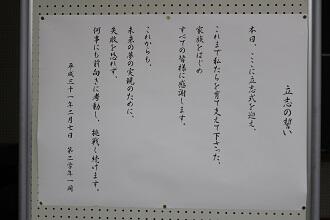 立志の誓い
本日、ここに立志式を迎え、
これまで私たちを育て支えて下さった、
家族をはじめ
すべての皆様に感謝します。
これからも、
未来の夢の実現のために、
失敗を恐れず、
何事にも前向きに考動し、挑戦し続けます。
平成三十一年二月七日　第二学年一同